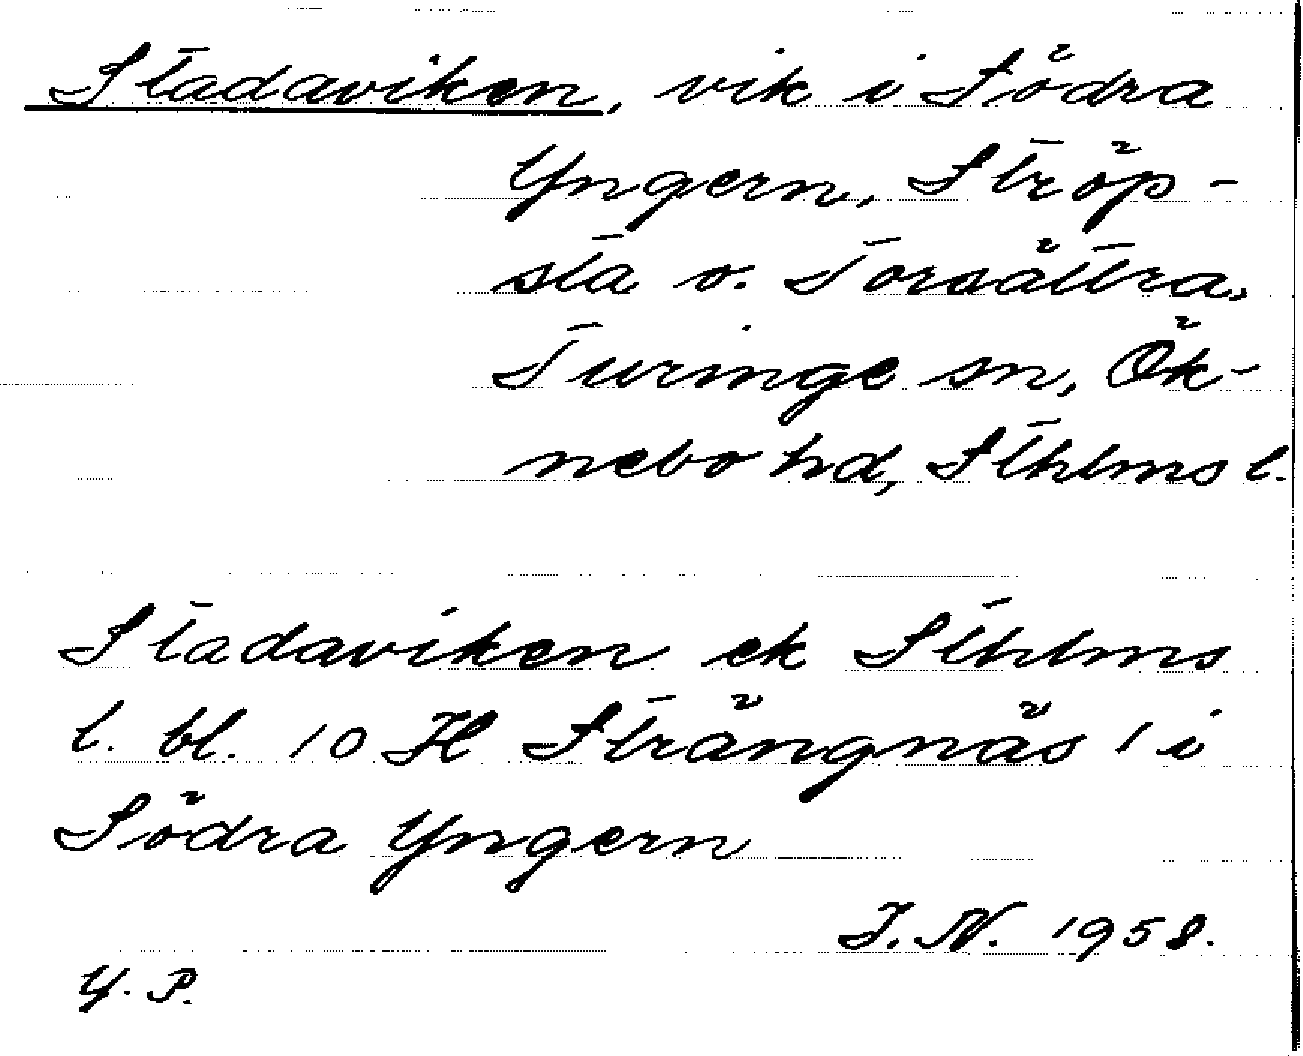 Stadaviken, vik i Södra
Yngern, Ströp-
sta o. Torsättra,
Turinge sn, Ök-
nebo hd, Sthlms l.
Stadaviken ek Sthlms
l. bl. 10 H Strängnäs 1 i
Södra Yngern
I. N. 1958.
Y. P.